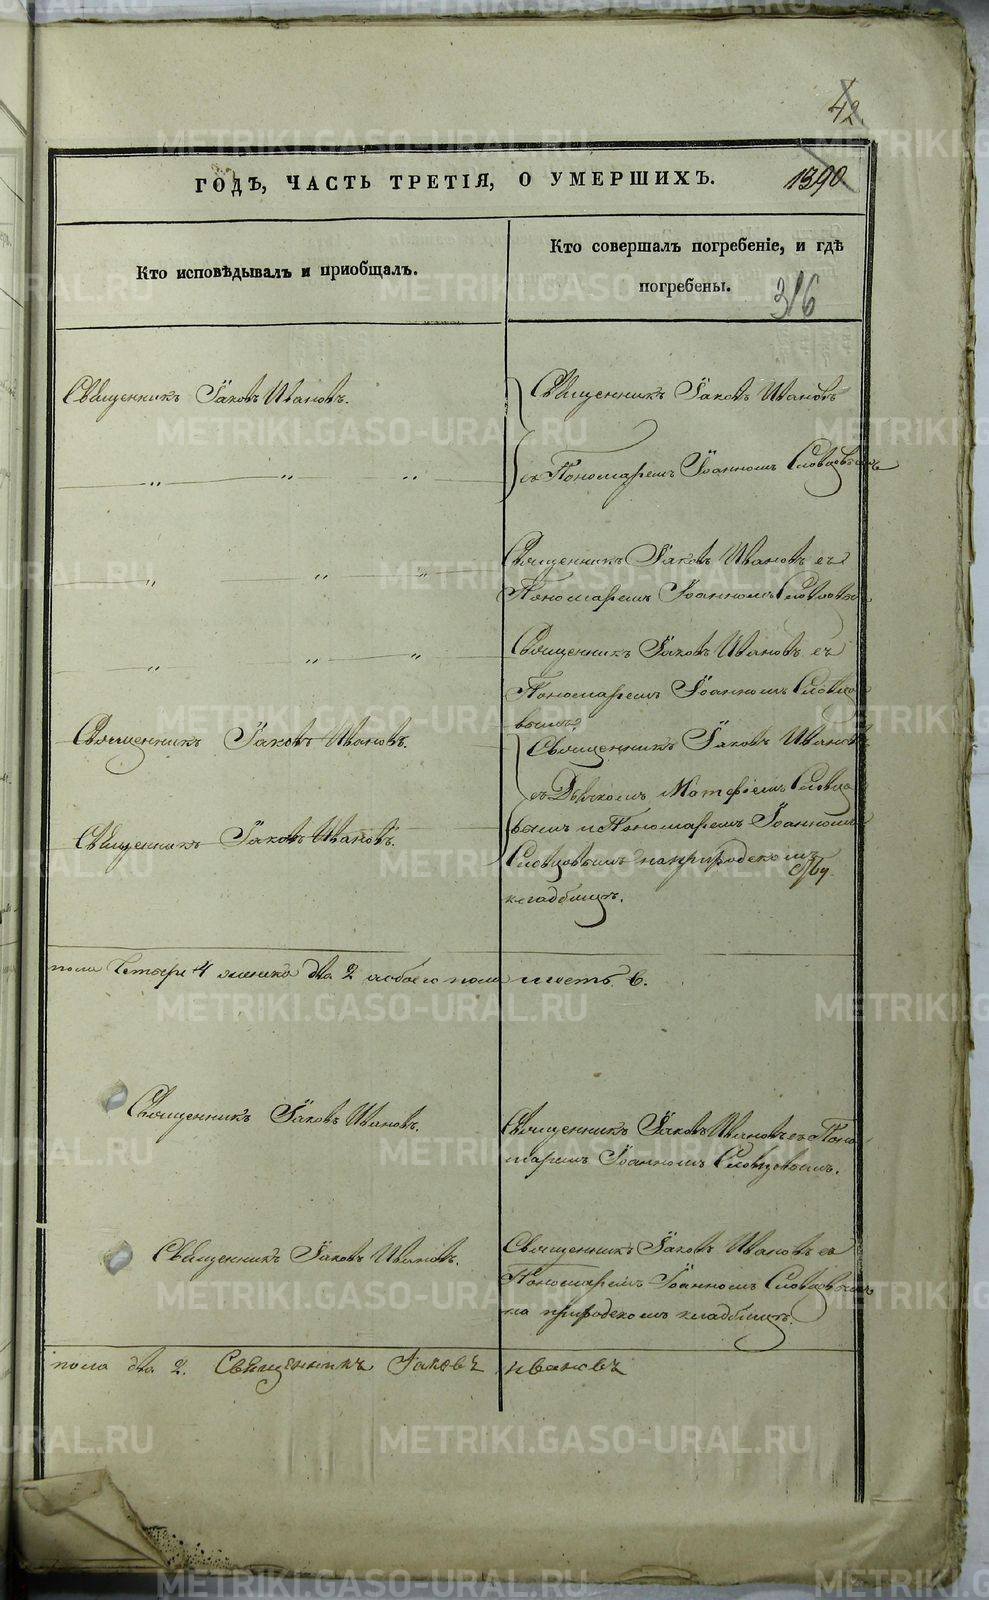 42.
ГОДЪ, ЧАСТЬ ТРЕТІЯ, О УМЕРШИХЪ.
1390
Кто исповѣдывалъ и пріобщалъ.
Кто совершалъ погребеніе, и гдѣ
погребены.
316
Священникъ Іаковъ Ивановъ.
Священникъ Іаковъ Ивановъ
съ Пономаремъ Іоанномъ Словцовымъ
„ „ „
„ „ „
Священникъ Іаковъ Ивановъ съ
Пономаремъ Іоанномъ Словцовы
„ „ „
Священникъ Іаковъ Ивановъ съ
Пономаремъ Іоанномъ Словцо
вымъ
Священникъ Іаковъ Ивановъ.
Священникъ Іаковъ Ивановъ
съ Дьячкомъ Матфіемъ Словцо
Священникъ Іаковъ Ивановъ.
вымъ и Пономаремъ Іоанномъ
Словцовымъ на природскомъ
кладбищѣ.
пола четыре 4 женска два 2 а обоего пола шесть 6.
Священникъ Іаковъ Ивановъ.
Священникъ Іаковъ Ивановъ съ Поно
маремъ Іоанномъ Словцовымъ.
Священникъ Іаковъ Ивановъ.
Священникъ Іаковъ Ивановъ съ
Пономаремъ Іоанномъ Словцовымъ
на природскомъ кладбищѣ.
пола два 2. Священникъ Іаковъ Ивановъ
METRIKI.GASO-URAL.RU